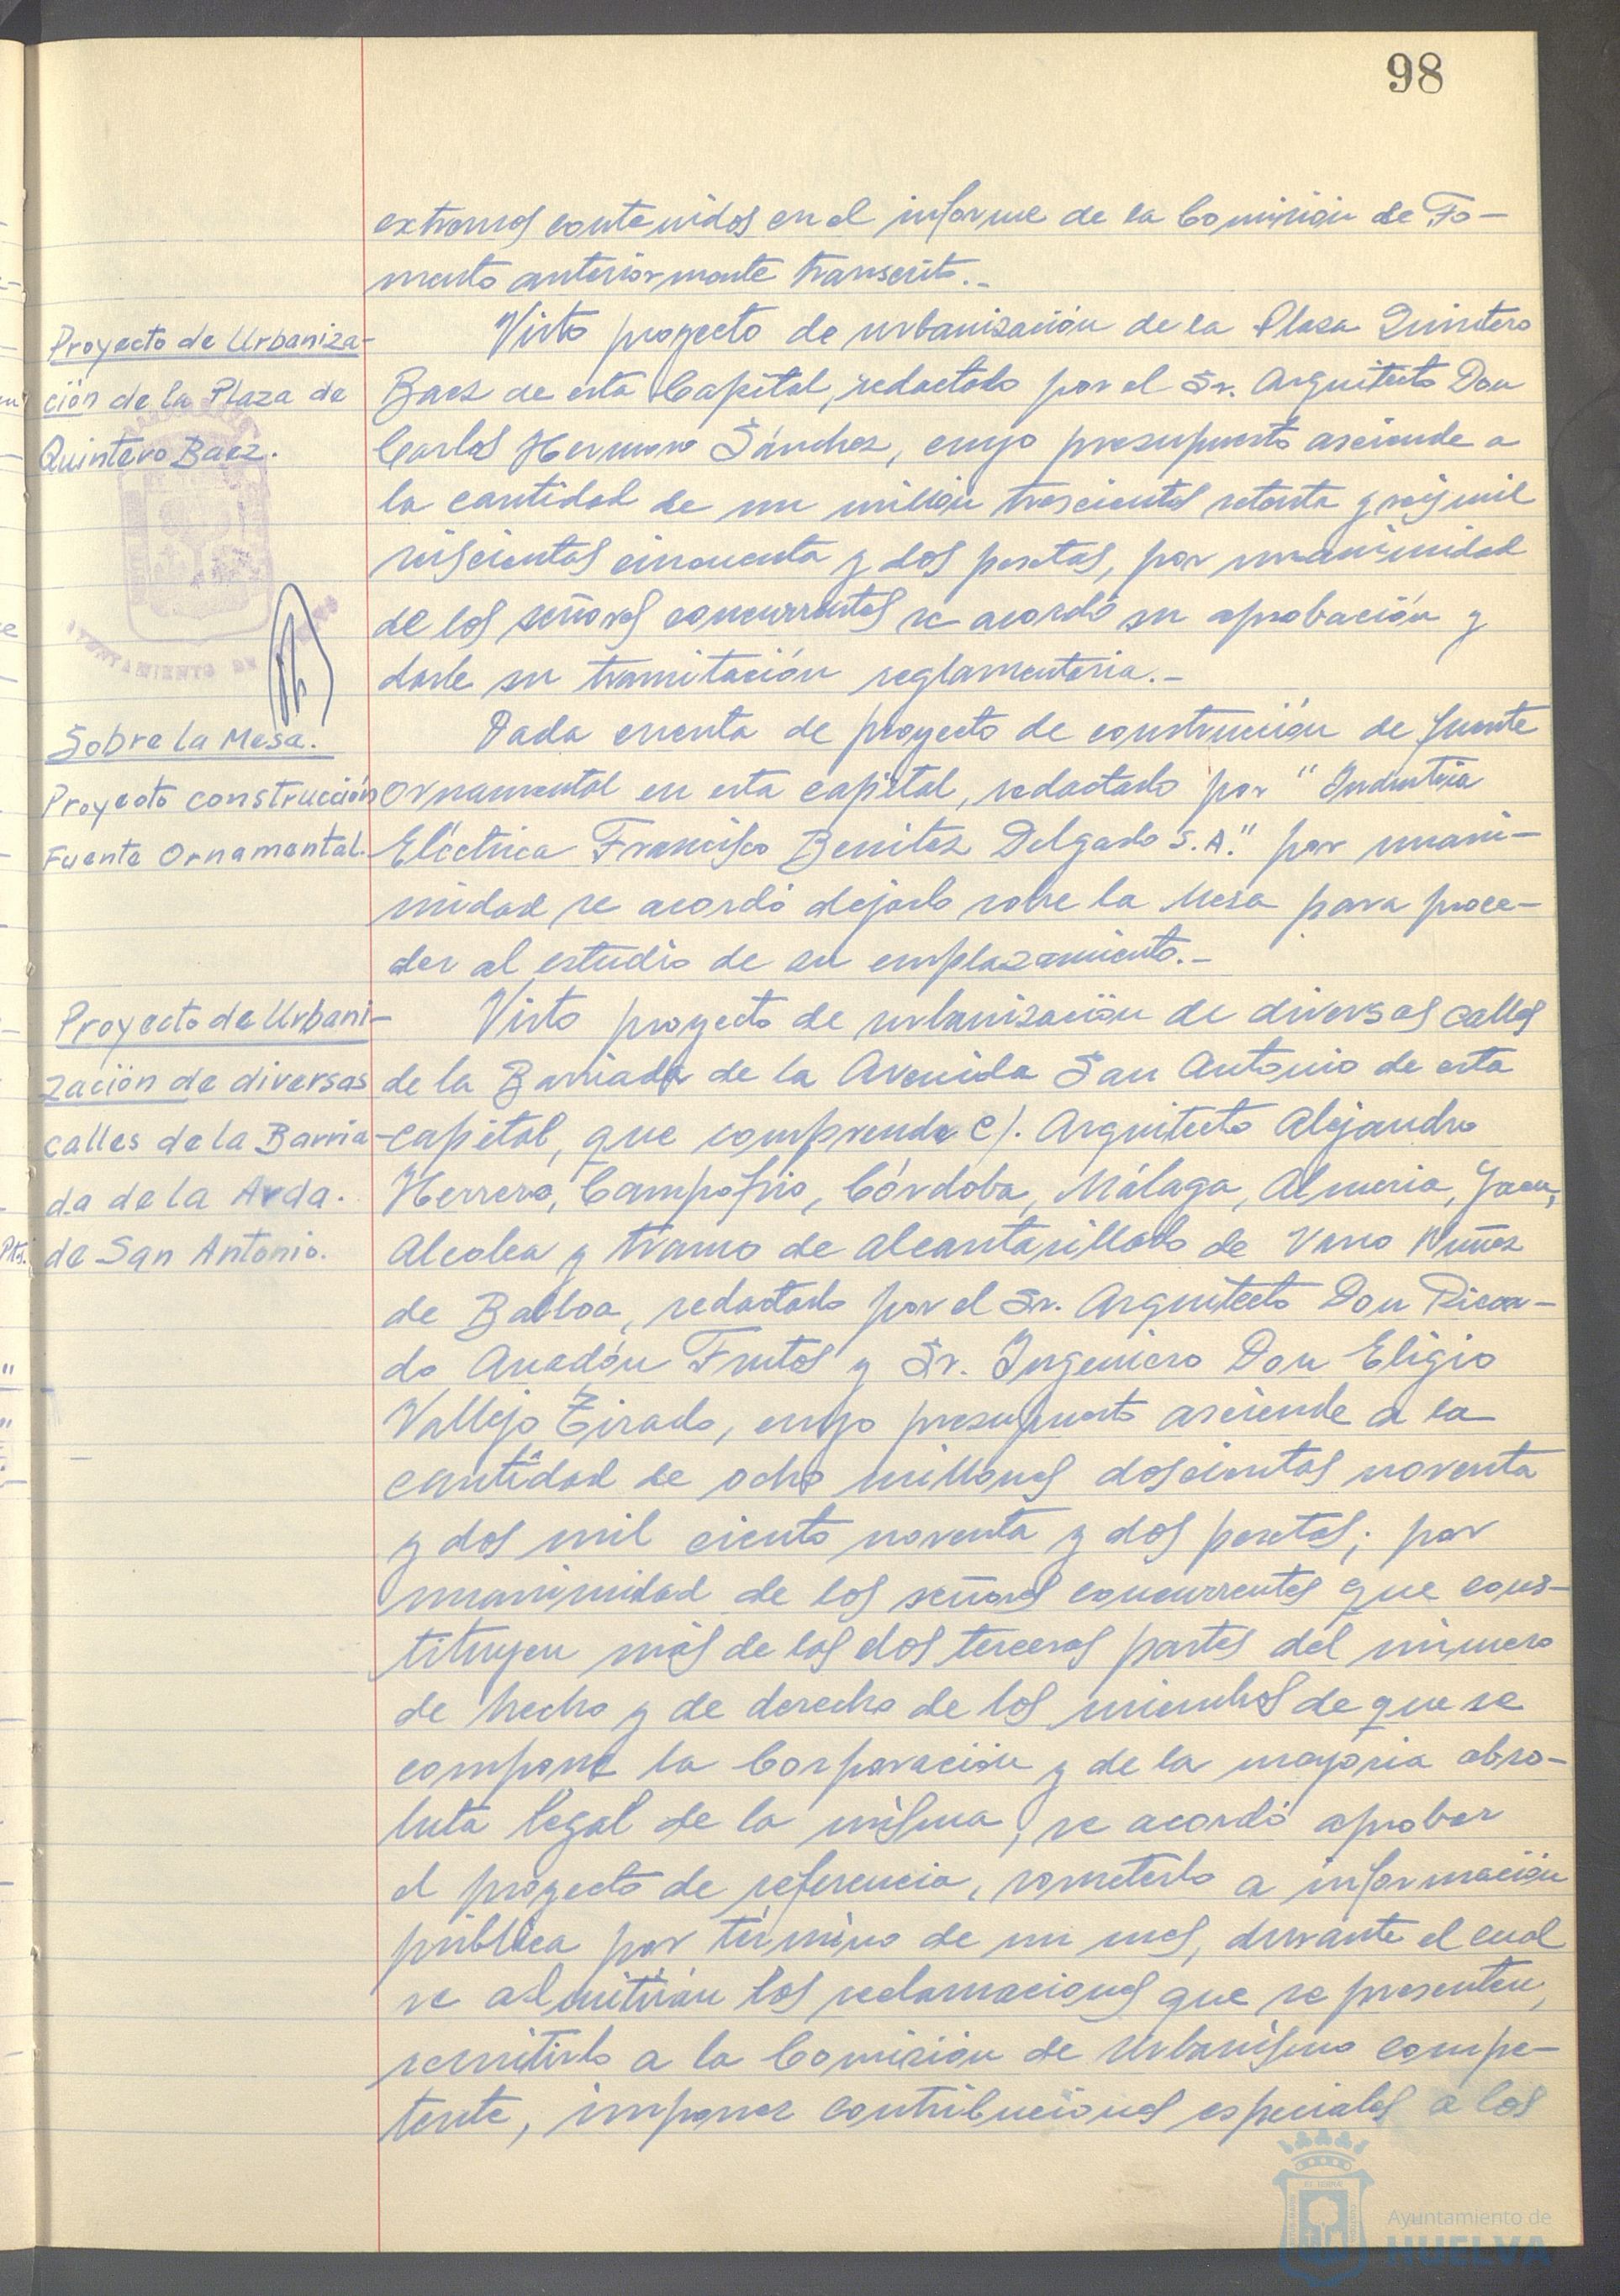 98
extremos contenidos en el informe de la Comisión de Fo-
mento anteriormente transcrito.-
Proyecto de Urbaniza-
ción de la Plaza de
Quintero Baez.
Visto proyecto de urbanización de la Plaza Quintero
Baez de esta Capital, redactado por el Sr. Arquitecto Don
Carlos Hermoso Sánchez, cuyo presupuesto asciende a
la cantidad de un millón trescientas setenta y seis mil
seiscientas cincuenta y dos pesetas, por unanimidad
de los señores concurrentes se acordó su aprobación y
darle su tramitación reglamentaria.-
AYUNTAMIENTO DE
Sobre la Mesa.
Proyecto construcción
Fuente Ornamental.
Dada cuenta de proyecto de construcción de fuente
ornamental en esta capital, redactado por "Industria
Eléctrica Francisco Benitez Delgado S.A." por unani-
midad se acordó dejarlo sobre la Mesa para proce-
der al estudio de su emplazamiento.-
Proyecto de Urbani-
zación de diversas
calles de la Barria-
da de la Avda.
de San Antonio.
Visto proyecto de urbanización de diversas calles
de la Barriada de la Avenida San Antonio de esta
capital, que comprende C/. Arquitecto Alejandro
Herrero, Campofrio, Córdoba, Málaga, Almeria, Jaen,
Alcolea y tramo de alcantarillado de Vasco Nuñez
de Balboa, redactado por el Sr. Arquitecto Don Ricar-
do Anadón Frutos y Sr. Ingeniero Don Eligio
Vallejo Tirado, cuyo presupuesto asciende a la
cantidad de ocho millones doscientas noventa
y dos mil ciento noventa y dos pesetas; por
unanimidad de los señores concurrentes que cons-
tituyen más de las dos terceras partes del número
de hecho y de derecho de los miembros de que se
compone la Corporación y de la mayoria abso-
luta legal de la misma, se acordó aprobar
el proyecto de referencia, someterlo a información
pública por término de un mes, durante el cual
se admitirán las reclamaciones que se presenten,
remitirlo a la Comisión de Urbanismo compe-
tente, imponer contribuciones especiales a los
Ayuntamiento de
HUELVA